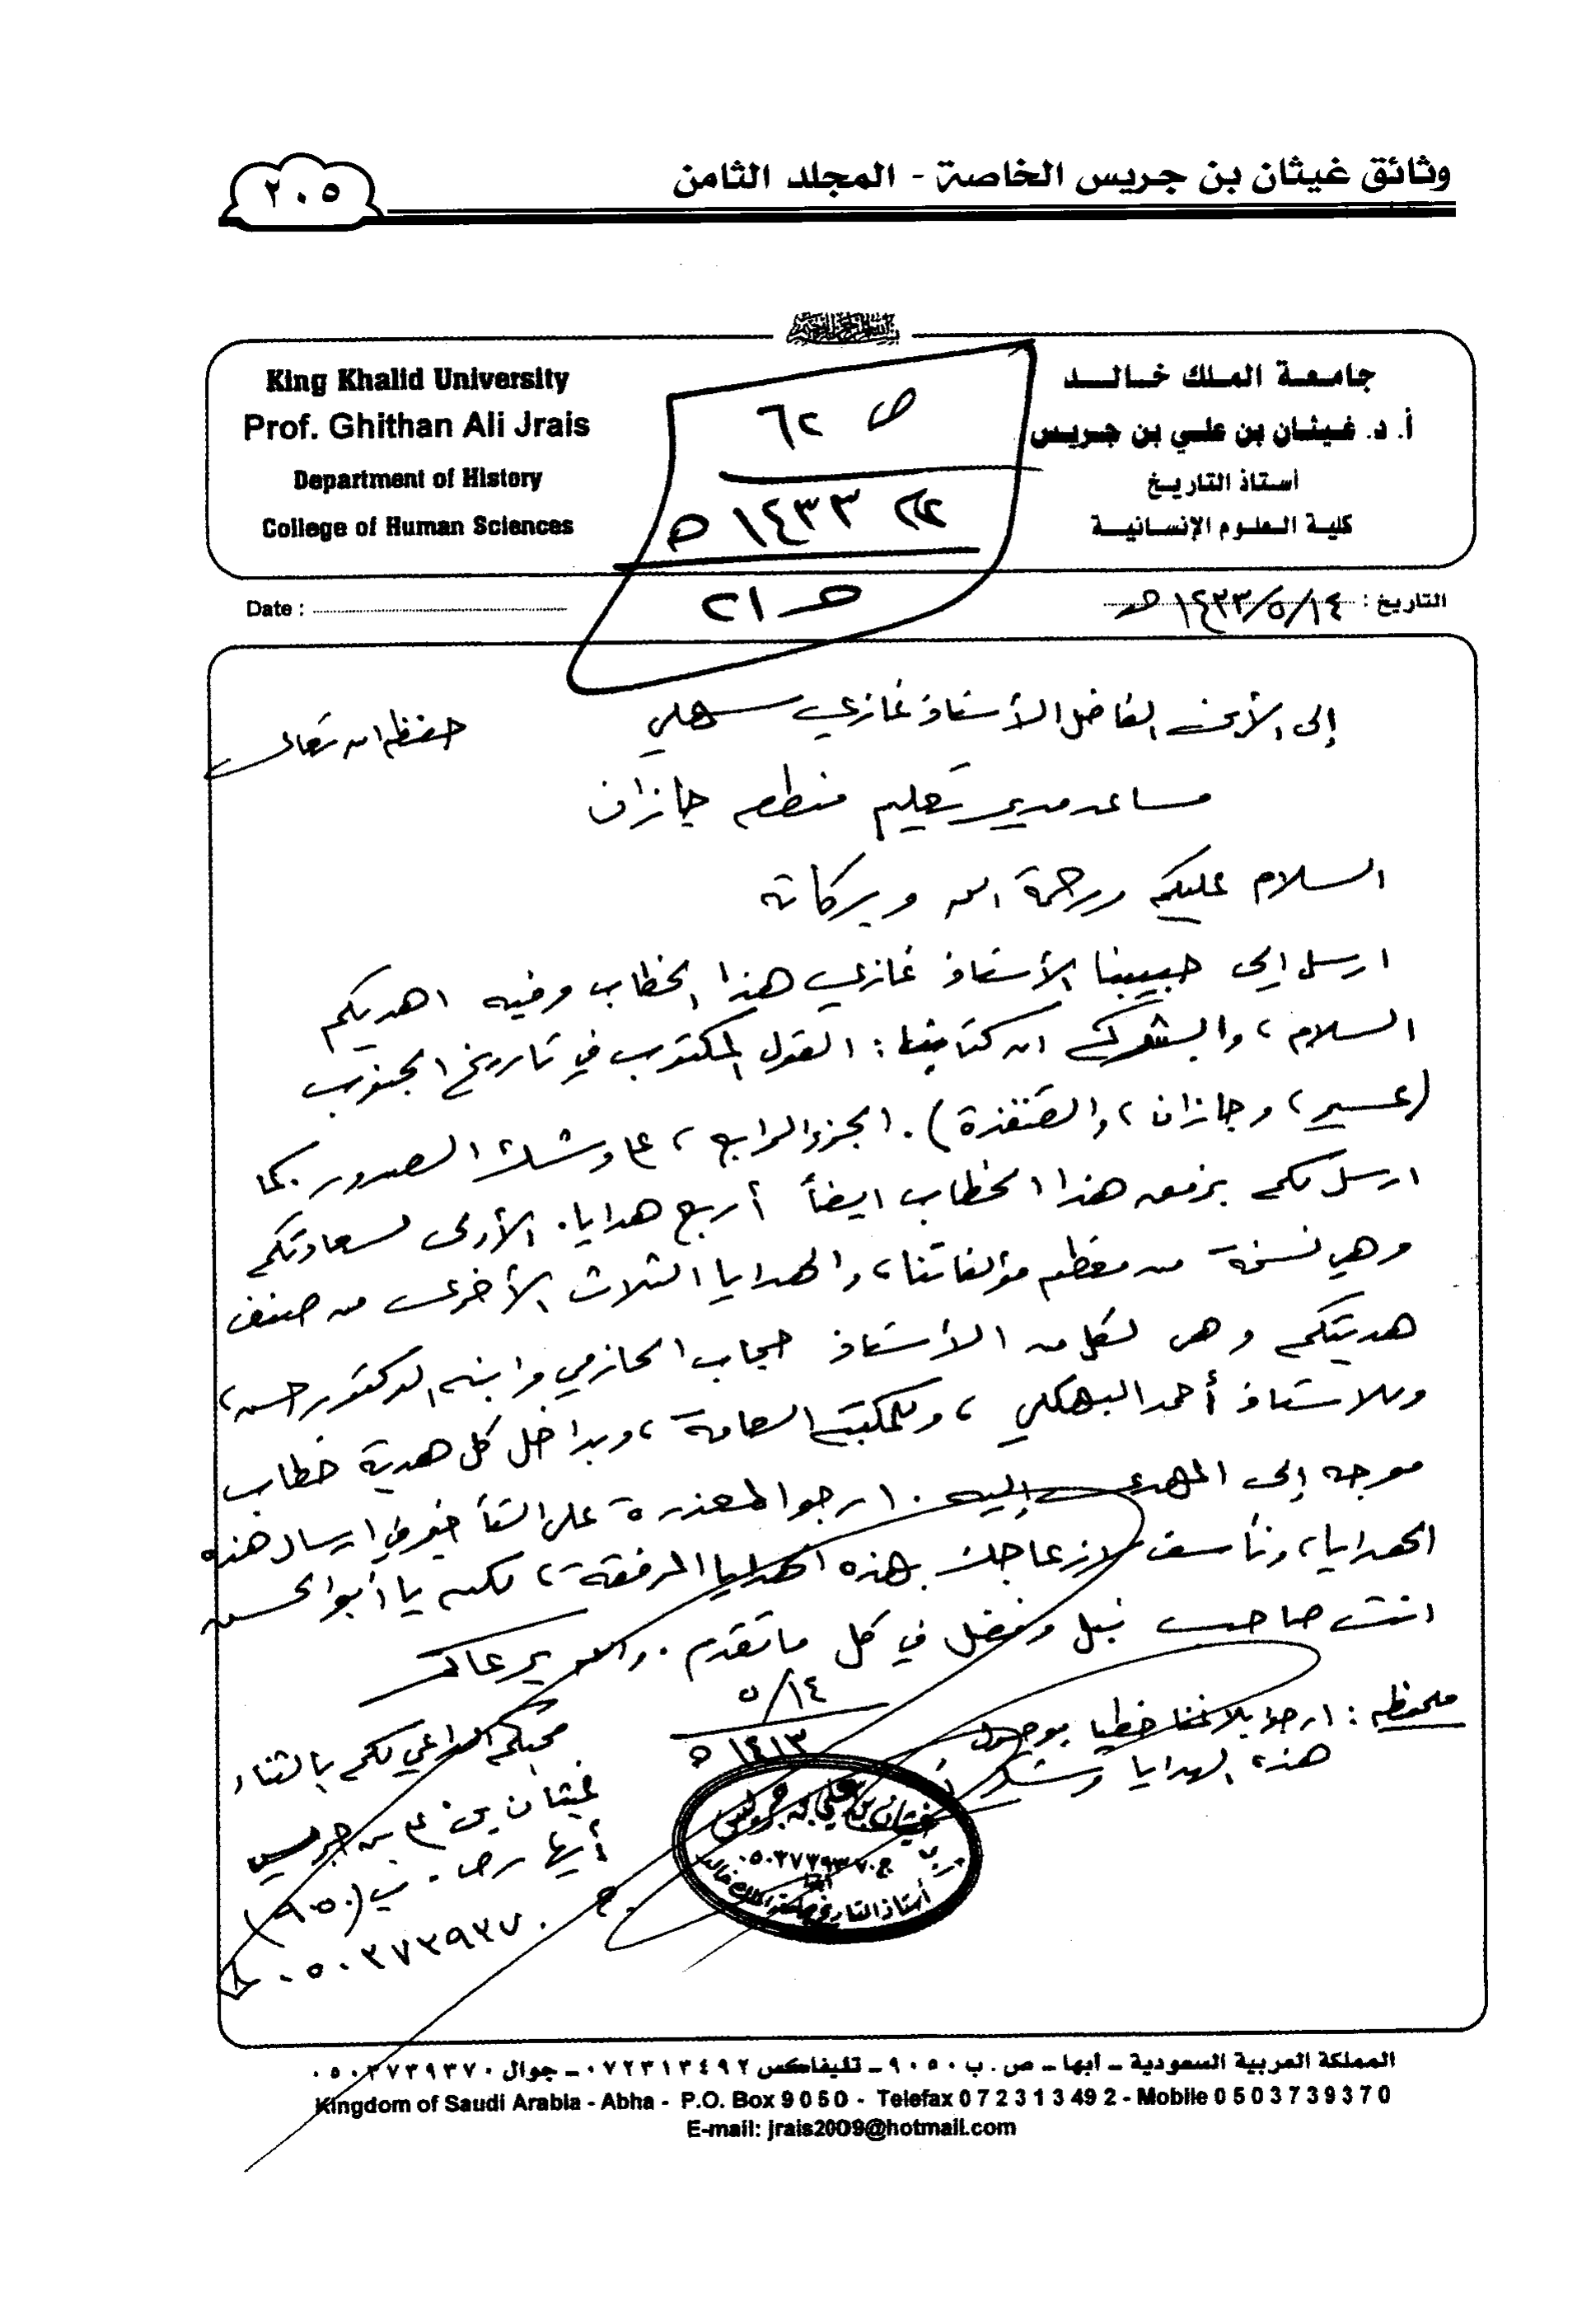 وثائق غيثان بن جريس الخاصة - المجلد الثامن
٢٠٥
جامعة الملك خالد
أ. د. غيثان بن علي بن جريس
أستاذ التاريخ
كلية العلوم الإنسانية
King Khalid University
Prof. Ghithan Ali Jrais
Department of History
College of Human Sciences
ص ٦٢
١٤٣٣ هـ
٢١
التاريخ : ١٤٣٣/٥/١٤ هـ
Date :
إلى الأخ الفاضل الأستاذ غازي سهلي حفظه الله تعالى
مساعد مدير تعليم منطقة جازان
السلام عليكم ورحمة الله وبركاته
ارسل إلى حبيبنا الأستاذ غازي هذا الخطاب وفيه اهديكم
السلام، وابشركم ان كتابنا: القول المكتوب في تاريخ الجنوب
(عسير، وجازان، والقنفذة). الجزء الرابع، على وشك الصدور. كما
ارسل لكم برفقه هذا الخطاب ايضاً أربع هدايا. الأولى لسعادتكم
وهي نسخة من معظم مؤلفاتنا، والهدايا الثلاث الأخرى من صنف
هديتكم وهي لكل من الأستاذ حجاب الحازمي وابنه الدكتور حسن،
وللاستاذ أحمد البهكلي، وللمكتبة العامة، وبداخل كل هدية خطاب
موجه إلى المهدى إليه. ارجو المعذرة على التأخير في ارسال هذه
الهدايا، ونأسف لازعاجك بهذه الهدايا المرفقة، لكن يا أبو الحسن
انت صاحب نبل وفضل في كل ما تقدم. والله يرعاكم
١٤/٥
١٤١٣ هـ
محبكم الداعي لكم بالثناء
غيثان بن علي بن جريس
أبها ص. ب (٩٠٥٠)
ج. ٠٥٠٣٧٣٩٣٧٠
ملحظة : ارجو ابلاغنا خطيا بوصول
هذه الهدايا وشكراً
غيثان بن علي بن جريس
ج. ٠٥٠٣٧٣٩٣٧٠
أبها
أستاذ التاريخ جامعة الملك خالد
المملكة العربية السعودية – أبها – ص. ب ٩٠٥٠ – تليفاكس ٠٧٢٣١٣٤٩٢ – جوال ٠٥٠٣٧٣٩٣٧٠
Kingdom of Saudi Arabia - Abha - P.O. Box 9050 - Telefax 072313492 - Mobile 0503739370
E-mail: jrais2009@hotmail.com